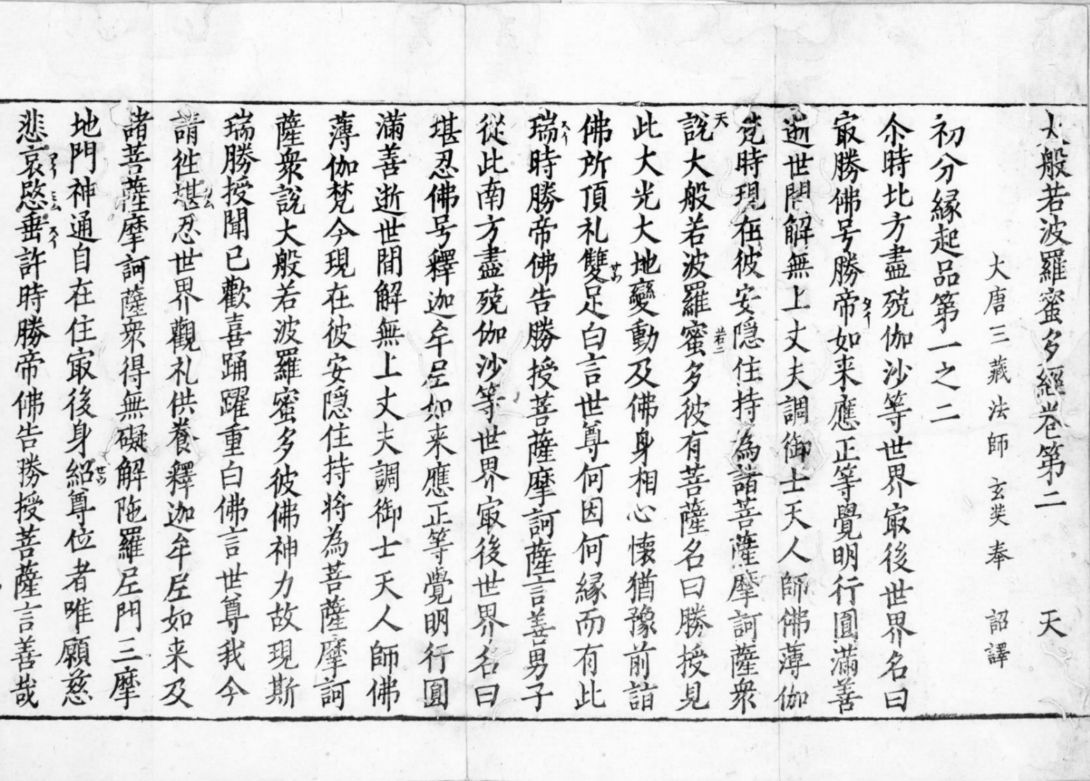 大般若波羅蜜多經卷第二 天
大唐三藏法師玄奘奉 詔譯
初分緣起品第一之二
尒時北方盡殑伽沙等世界㝡後世界名曰
㝡勝佛号勝帝如来應正等覺明行圓滿善
逝世間解無上丈夫調御士天人師佛薄伽
梵時現在彼安隱住持為諸菩薩摩訶薩衆
說大般若波羅蜜多彼有菩薩名曰勝授見
此大光大地變動及佛身相心懷猶豫前詣
佛所頂礼雙足白言世尊何因何緣而有此
瑞時勝帝佛告勝授菩薩摩訶薩言善男子
從此南方盡殑伽沙等世界㝡後世界名曰
堪忍佛号釋迦牟尼如来應正等覺明行圓
滿善逝世間解無上丈夫調御士天人師佛
薄伽梵今現在彼安隱住持將為菩薩摩訶
薩衆說大般若波羅蜜多彼佛神力故現斯
瑞勝授聞已歡喜踊躍重白佛言世尊我今
請往堪忍世界觀礼供養釋迦牟尼如来及
諸菩薩摩訶薩衆得無礙解陁羅尼門三摩
地門神通自在住㝡後身紹尊位者唯願慈
悲哀愍垂許時勝帝佛告勝授菩薩言善哉